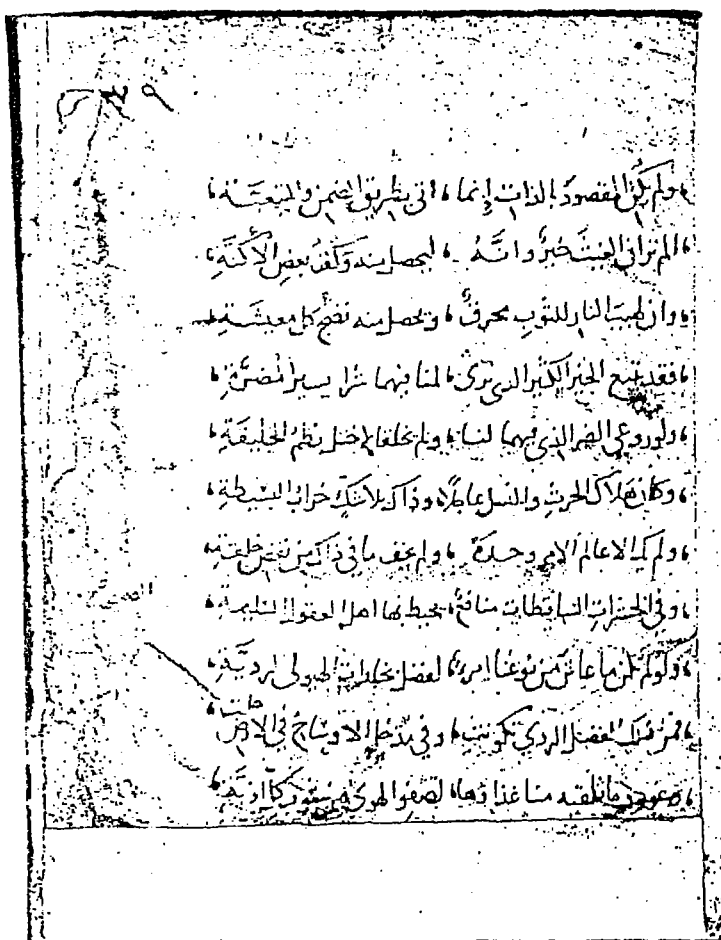 ولم يكن المقصود بالذات إنما، أتى بطريق الضمن والتبعية
ألم تر أن الغيث خير وانه، ليحصل منه وكف بعض الأكنة
وان طبيب النار للثوب محرق، ويحصل منه نضج كل معيشة
فقد تبع الخير الكثير الذي ترى، لمنافيهما شرا يسيرا لمضرة
ولو روعي الضر الذي فيهما لنا، ولم يخلقا لاختل نظم الخليقة
وكان هلاك الحرث والنسل عاجلا، وذاك بلا شك خراب البسيطة
ولم يك الا عالم الامر وحده، ولم يخف ما في ذاك من نقص خلقة
وفي الحشرات الساقطات منافع، يحيط بها اهل العقول السليمة
ولو لم تكن ما عاش من نوعنا امرؤ، لفضل الهيولى الردية
فمن ذلك الفضل الردي تكونت، وفي الاوساخ في الارض حلت
ما تلقيه منا غذاؤها، لصفو الهوى من